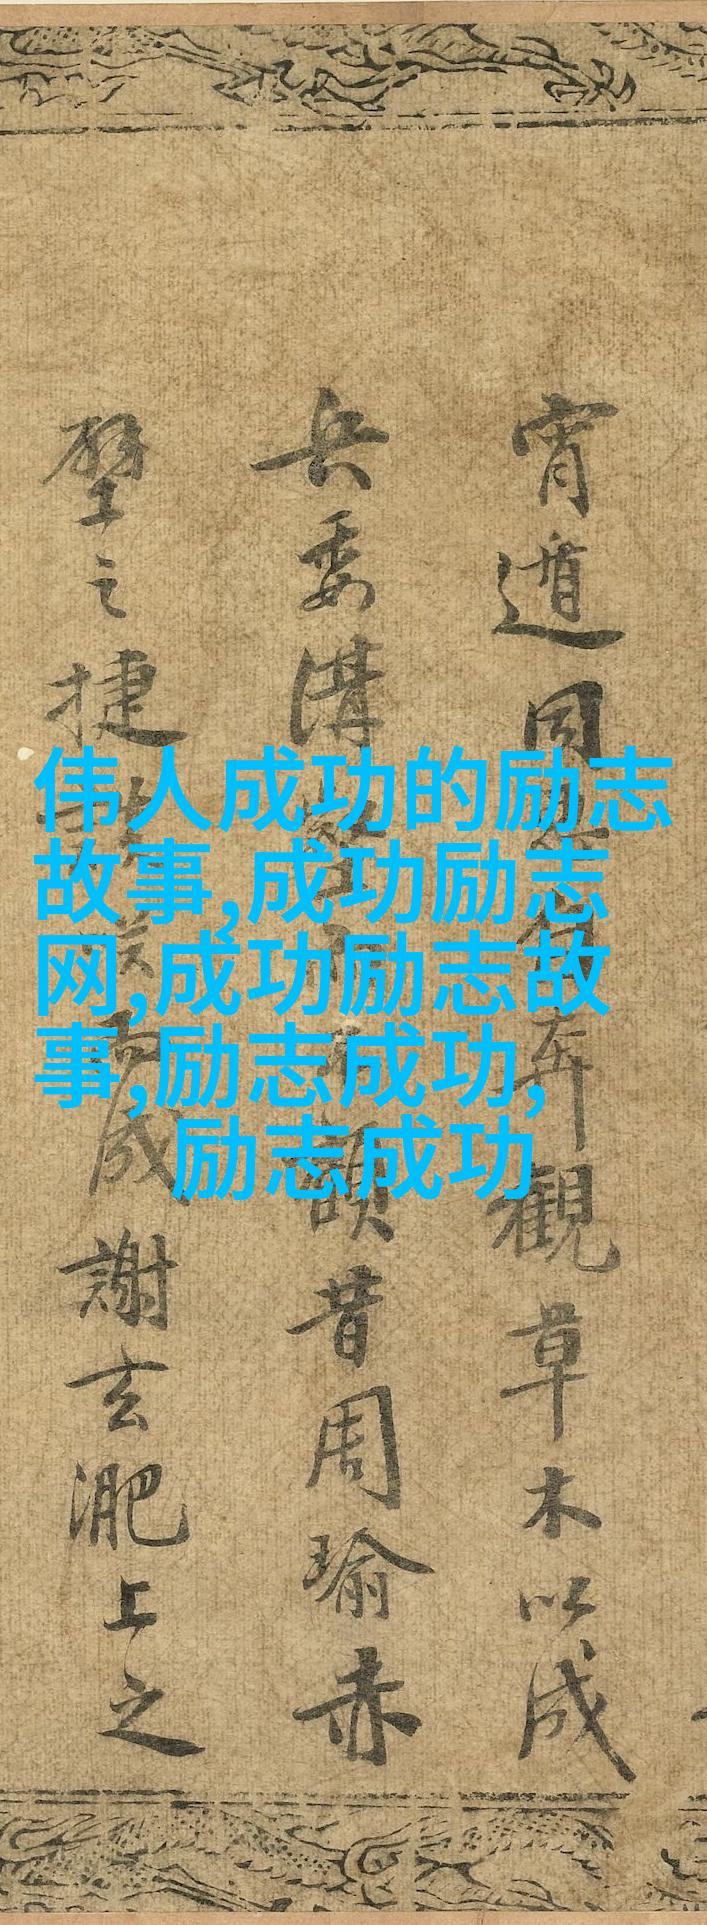 宵遁同奔觀草木以成
兵委溝壑顧昔周瑜赤
壁之捷而成謝玄淝上之
伟人成功的励志
故事,成功励志
网,成功励志故
事,励志成功,
励志成功